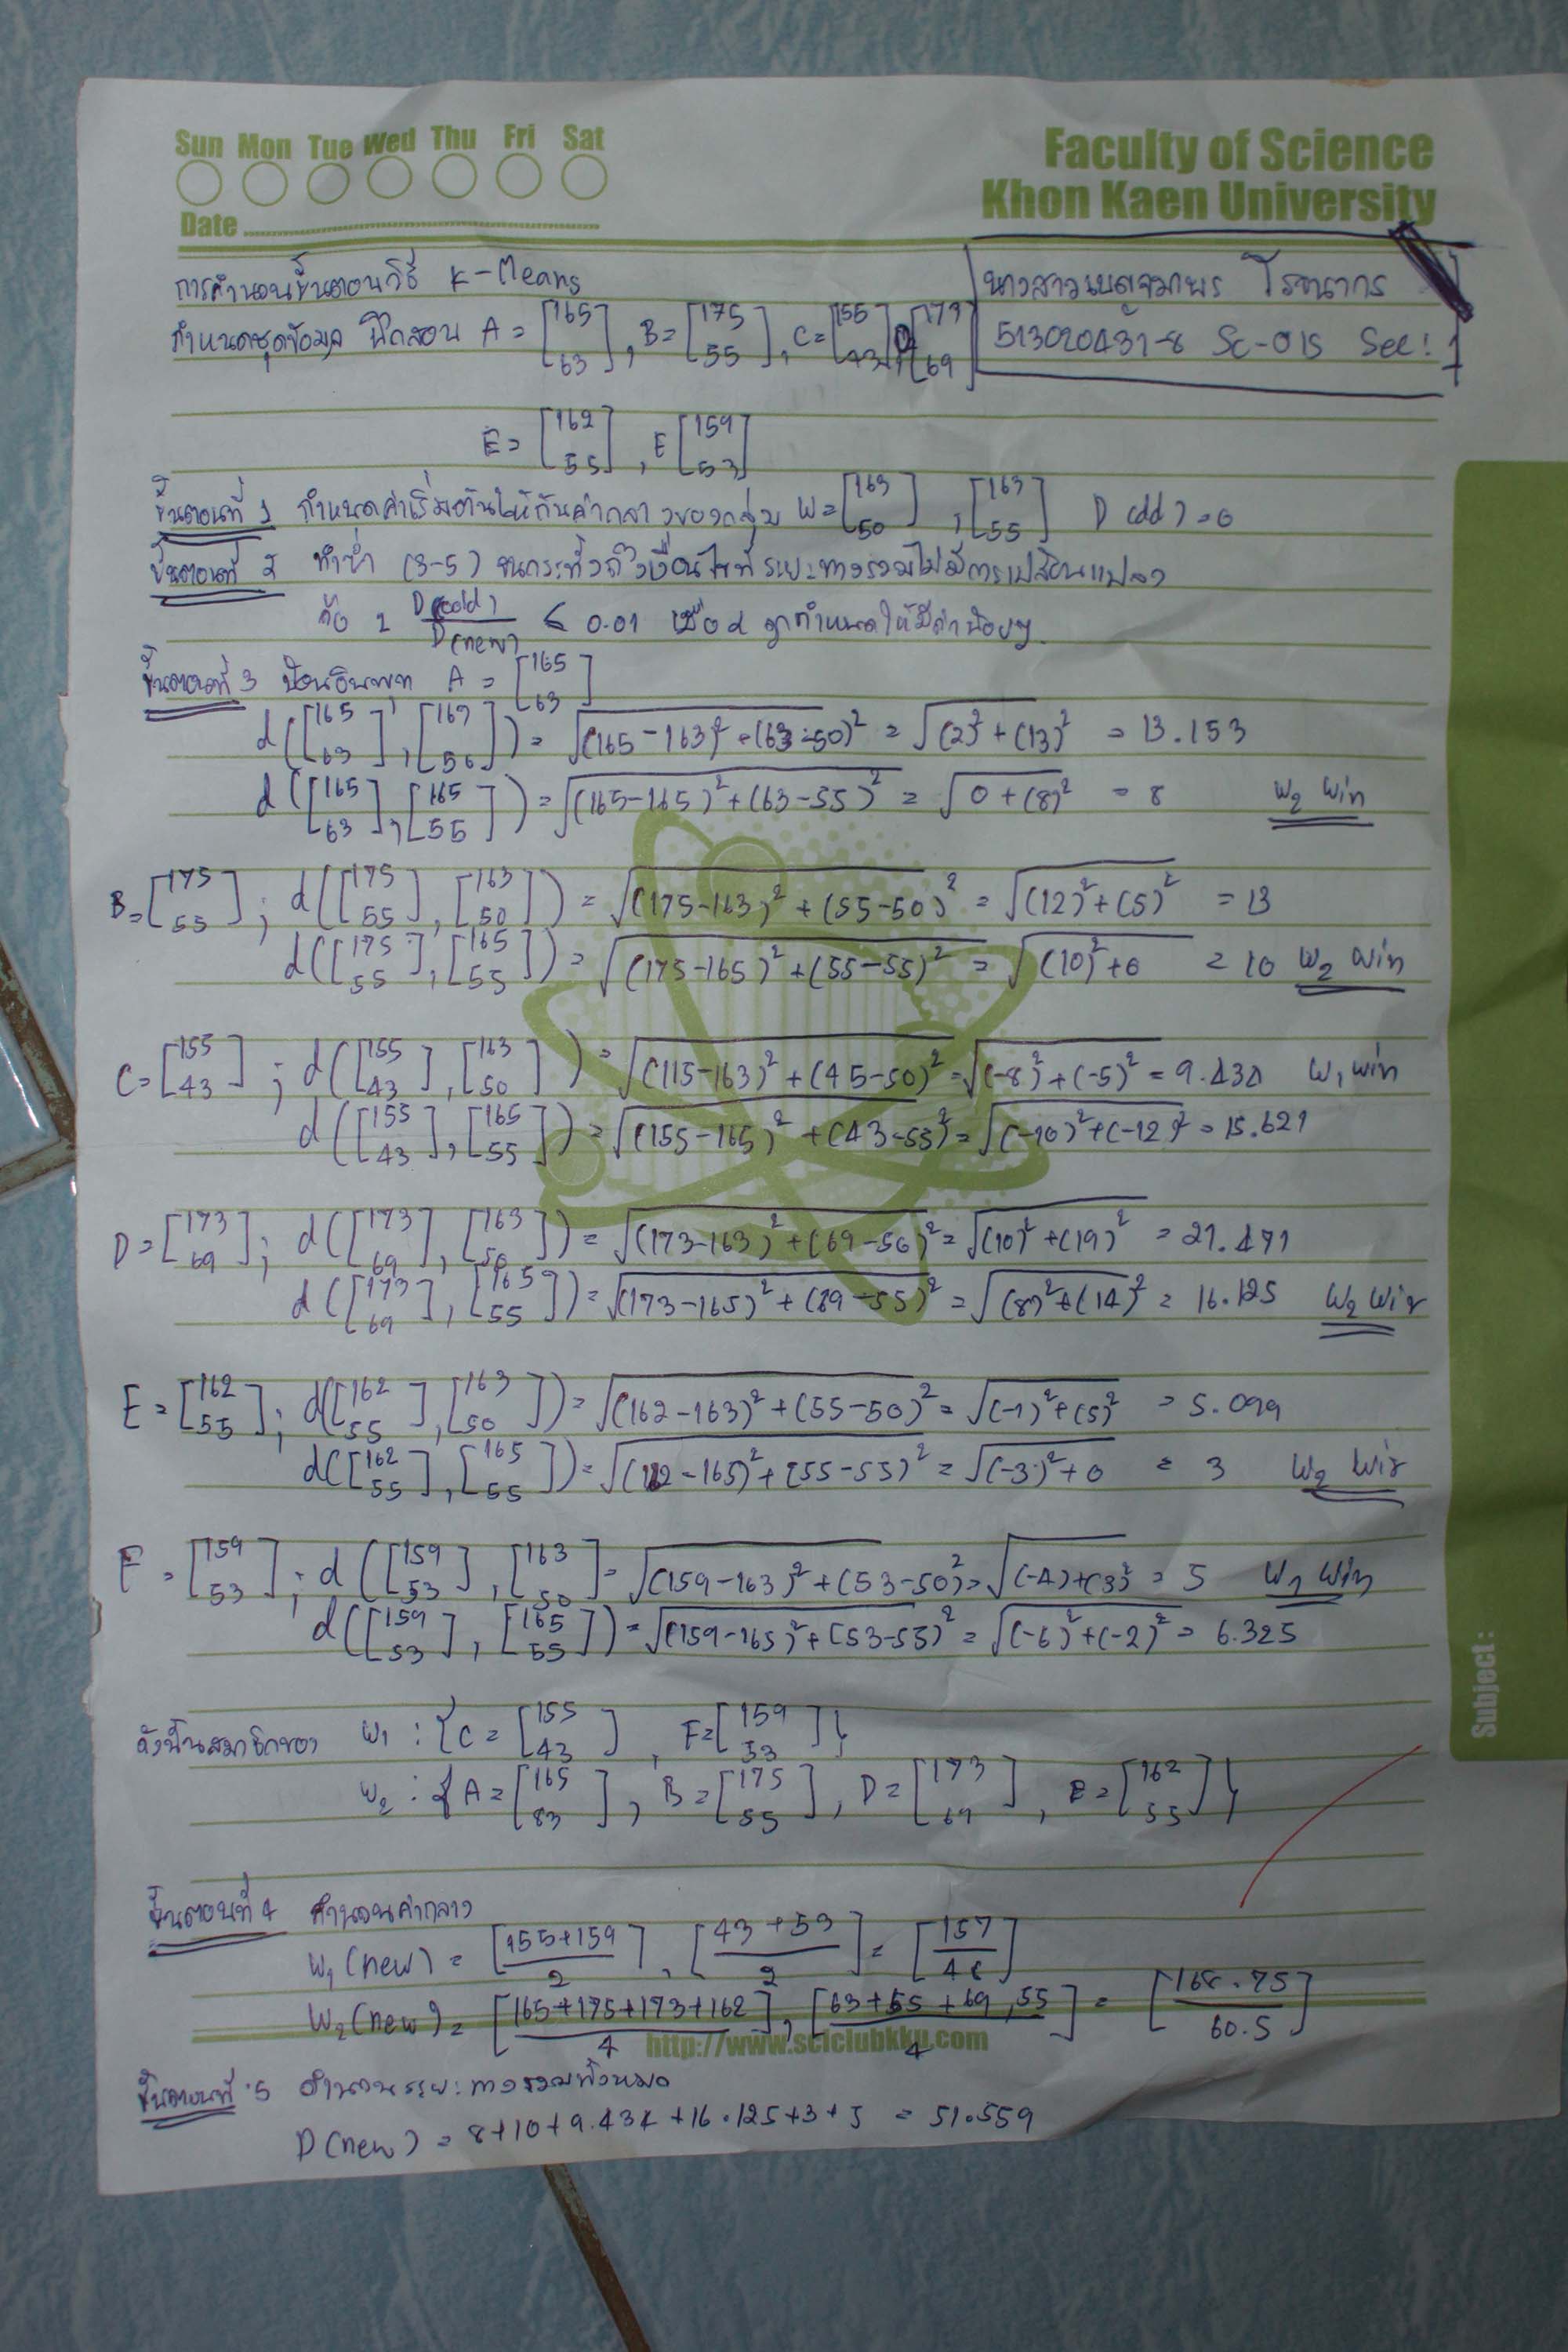 Sun Mon Tue Wed Thu Fri Sat
Date
Faculty of Science
Khon Kaen University
การคำนวนขั้นตอนวิธี K-Means
กำหนดชุดข้อมูล ฝึกสอน A = [165 63], B = [175 55], C = [155 43], D [173 69]
513020431-8 Sc-OIS Sec! 1
E = [162 55], F [159 53]
ขั้นตอนที่ 1 กำหนดค่าเริ่มต้นให้กับค่ากลางของกลุ่ม W = [163 50], [163 55] D (old) = 0
ขั้นตอนที่ 2 ทำซ้ำ (3-5) จนกระทั่งถึงเงื่อนไขที่ระยะทางรวมไม่มีการเปลี่ยนแปลง
คือ 1 D(old)/D(new) ≤ 0.01 เมื่อ α ถูกกำหนดให้มีค่าน้อยๆ
ขั้นตอนที่ 3 ป้อนอินพุท A = [165 63]
d([165 63], [163 50]) = √(165-163)² + (63-50)² = √(2)² + (13)² = 13.153
d([165 63], [165 55]) = √(165-165)² + (63-55)² = √0 + (8)² = 8 W₂ win
B = [175 55]; d([175 55], [163 50]) = √(175-163)² + (55-50)² = √(12)² + (5)² = 13
d([175 55], [165 55]) = √(175-165)² + (55-55)² = √(10)² + 0 = 10 W₂ win
C = [155 43]; d([155 43], [163 50]) = √(115-163)² + (45-50)² = √(-8)² + (-5)² = 9.434 W₁ win
d([155 43], [165 55]) = √(155-165)² + (43-55)² = √(-10)² + (-12)² = 15.621
D = [173 69]; d([173 69], [163 50]) = √(173-163)² + (69-50)² = √(10)² + (19)² = 21.471
d([173 69], [165 55]) = √(173-165)² + (89-55)² = √(8)² + (14)² = 16.125 W₂ win
E = [162 55]; d([162 55], [163 50]) = √(162-163)² + (55-50)² = √(-1)² + (5)² = 5.099
d([162 55], [165 55]) = √(162-165)² + (55-55)² = √(-3)² + 0 = 3 W₂ win
F = [159 53]; d([159 53], [163 50] = √(159-163)² + (53-50)² = √(-4) + (3)² = 5 W₁ win
d([159 53], [165 55]) = √(159-165)² + (53-55)² = √(-6)² + (-2)² = 6.325
ดังนั้นสมาชิกของ W₁ : {C = [155 43], F = [159 53]}
W₂ : {A = [165 83], B = [175 55], D = [173 69], E = [162 55]}
ขั้นตอนที่ 4 คำนวนค่ากลาง
W₁(new) = [155+159/2], [43+53/2] = [157/48]
W₂(new) = [165+175+173+162/4], [63+55+69,55/4] = [168.75/60.5]
http://www.sciclubkku.com
ขั้นตอนที่ 5 คำนวนระยะทางรวมทั้งหมด
D(new) = 8+10+9.434+16.125+3+5 = 51.559
Subject :